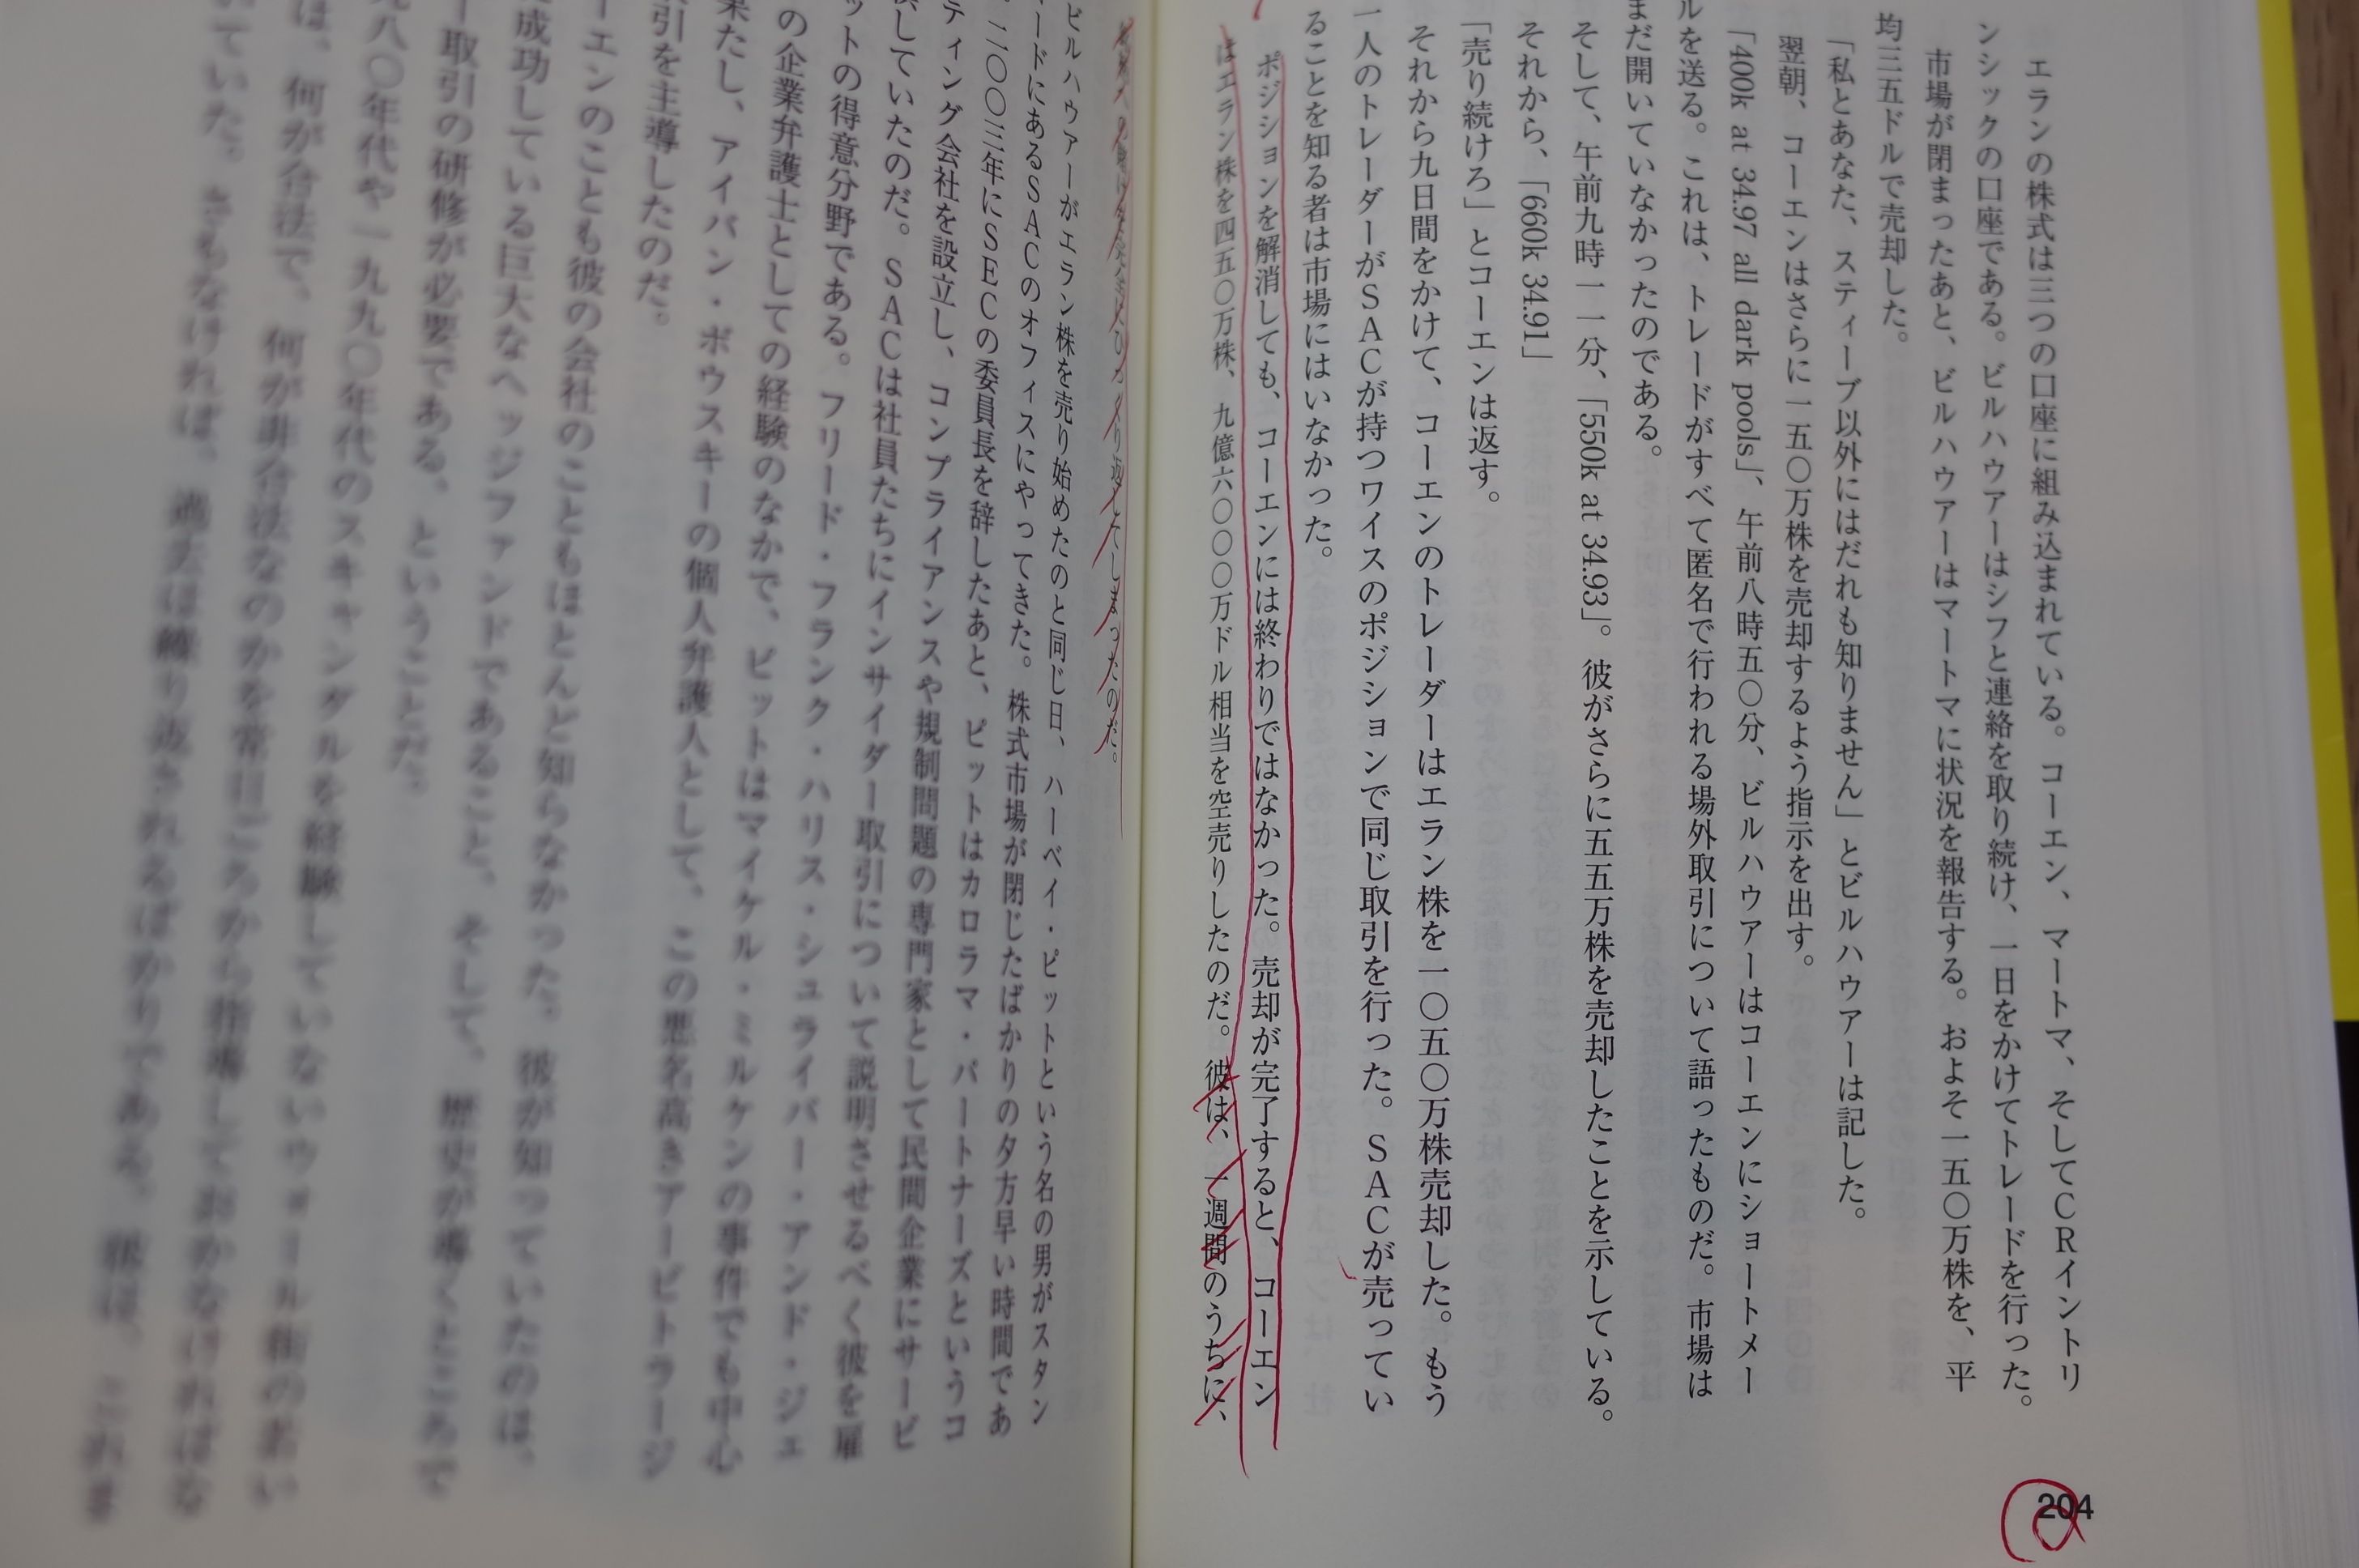 エランの株式は三つの口座に組み込まれている。コーエン、マートマ、そしてCRイントリ
ンシックの口座である。ビルハウアーはシフと連絡を取り続け、一日をかけてトレードを行った。
市場が閉まったあと、ビルハウアーはマートマに状況を報告する。およそ一五〇万株を、平
均三五ドルで売却した。
「私とあなた、スティーブ以外にはだれも知りません」とビルハウアーは記した。
翌朝、コーエンはさらに一五〇万株を売却するよう指示を出す。
「400k at 34.97 all dark pools」、午前八時五〇分、ビルハウアーはコーエンにショートメー
ルを送る。これは、トレードがすべて匿名で行われる場外取引について語ったものだ。市場は
まだ開いていなかったのである。
そして、午前九時一一分、「550k at 34.93」。彼がさらに五五万株を売却したことを示している。
それから、「660k 34.91」
「売り続けろ」とコーエンは返す。
それから九日間をかけて、コーエンのトレーダーはエラン株を一〇五〇万株売却した。もう
一人のトレーダーがSACが持つワイスのポジションで同じ取引を行った。SACが売ってい
ることを知る者は市場にはいなかった。
ポジションを解消しても、コーエンには終わりではなかった。売却が完了すると、コーエン
はエラン株を四五〇万株、九億六〇〇〇万ドル相当を空売りしたのだ。彼は、一週間のうちに、
り返してしまったのだ。
ビルハウアーがエラン株を売り始めたのと同じ日、ハーベイ・ピットという名の男がスタン
ードにあるSACのオフィスにやってきた。株式市場が閉じたばかりの夕方早い時間であ
二〇〇三年にSECの委員長を辞したあと、ピットはカロラマ・パートナーズというコ
ティング会社を設立し、コンプライアンスや規制問題の専門家として民間企業にサービ
していたのだ。SACは社員たちにインサイダー取引について説明させるべく彼を雇
ットの得意分野である。フリード・フランク・ハリス・シュライバー・アンド・ジェ
の企業弁護士としての経験のなかで、ピットはマイケル・ミルケンの事件でも中心
果たし、アイバン・ボウスキーの個人弁護人として、この悪名高きアービトラージ
取引を主導したのだ。
ーエンのことも彼の会社のこともほとんど知らなかった。彼が知っていたのは、
成功している巨大なヘッジファンドであること、そして、歴史が導くところで
ー取引の研修が必要である、ということだ。
八〇年代や一九九〇年代のスキャンダルを経験していないウォール街の若い
は、何が合法で、何が非合法なのかを常日ごろから指導しておかなければな
ていた。さもなければ、過去は繰り返されるばかりである。彼は、これま
204